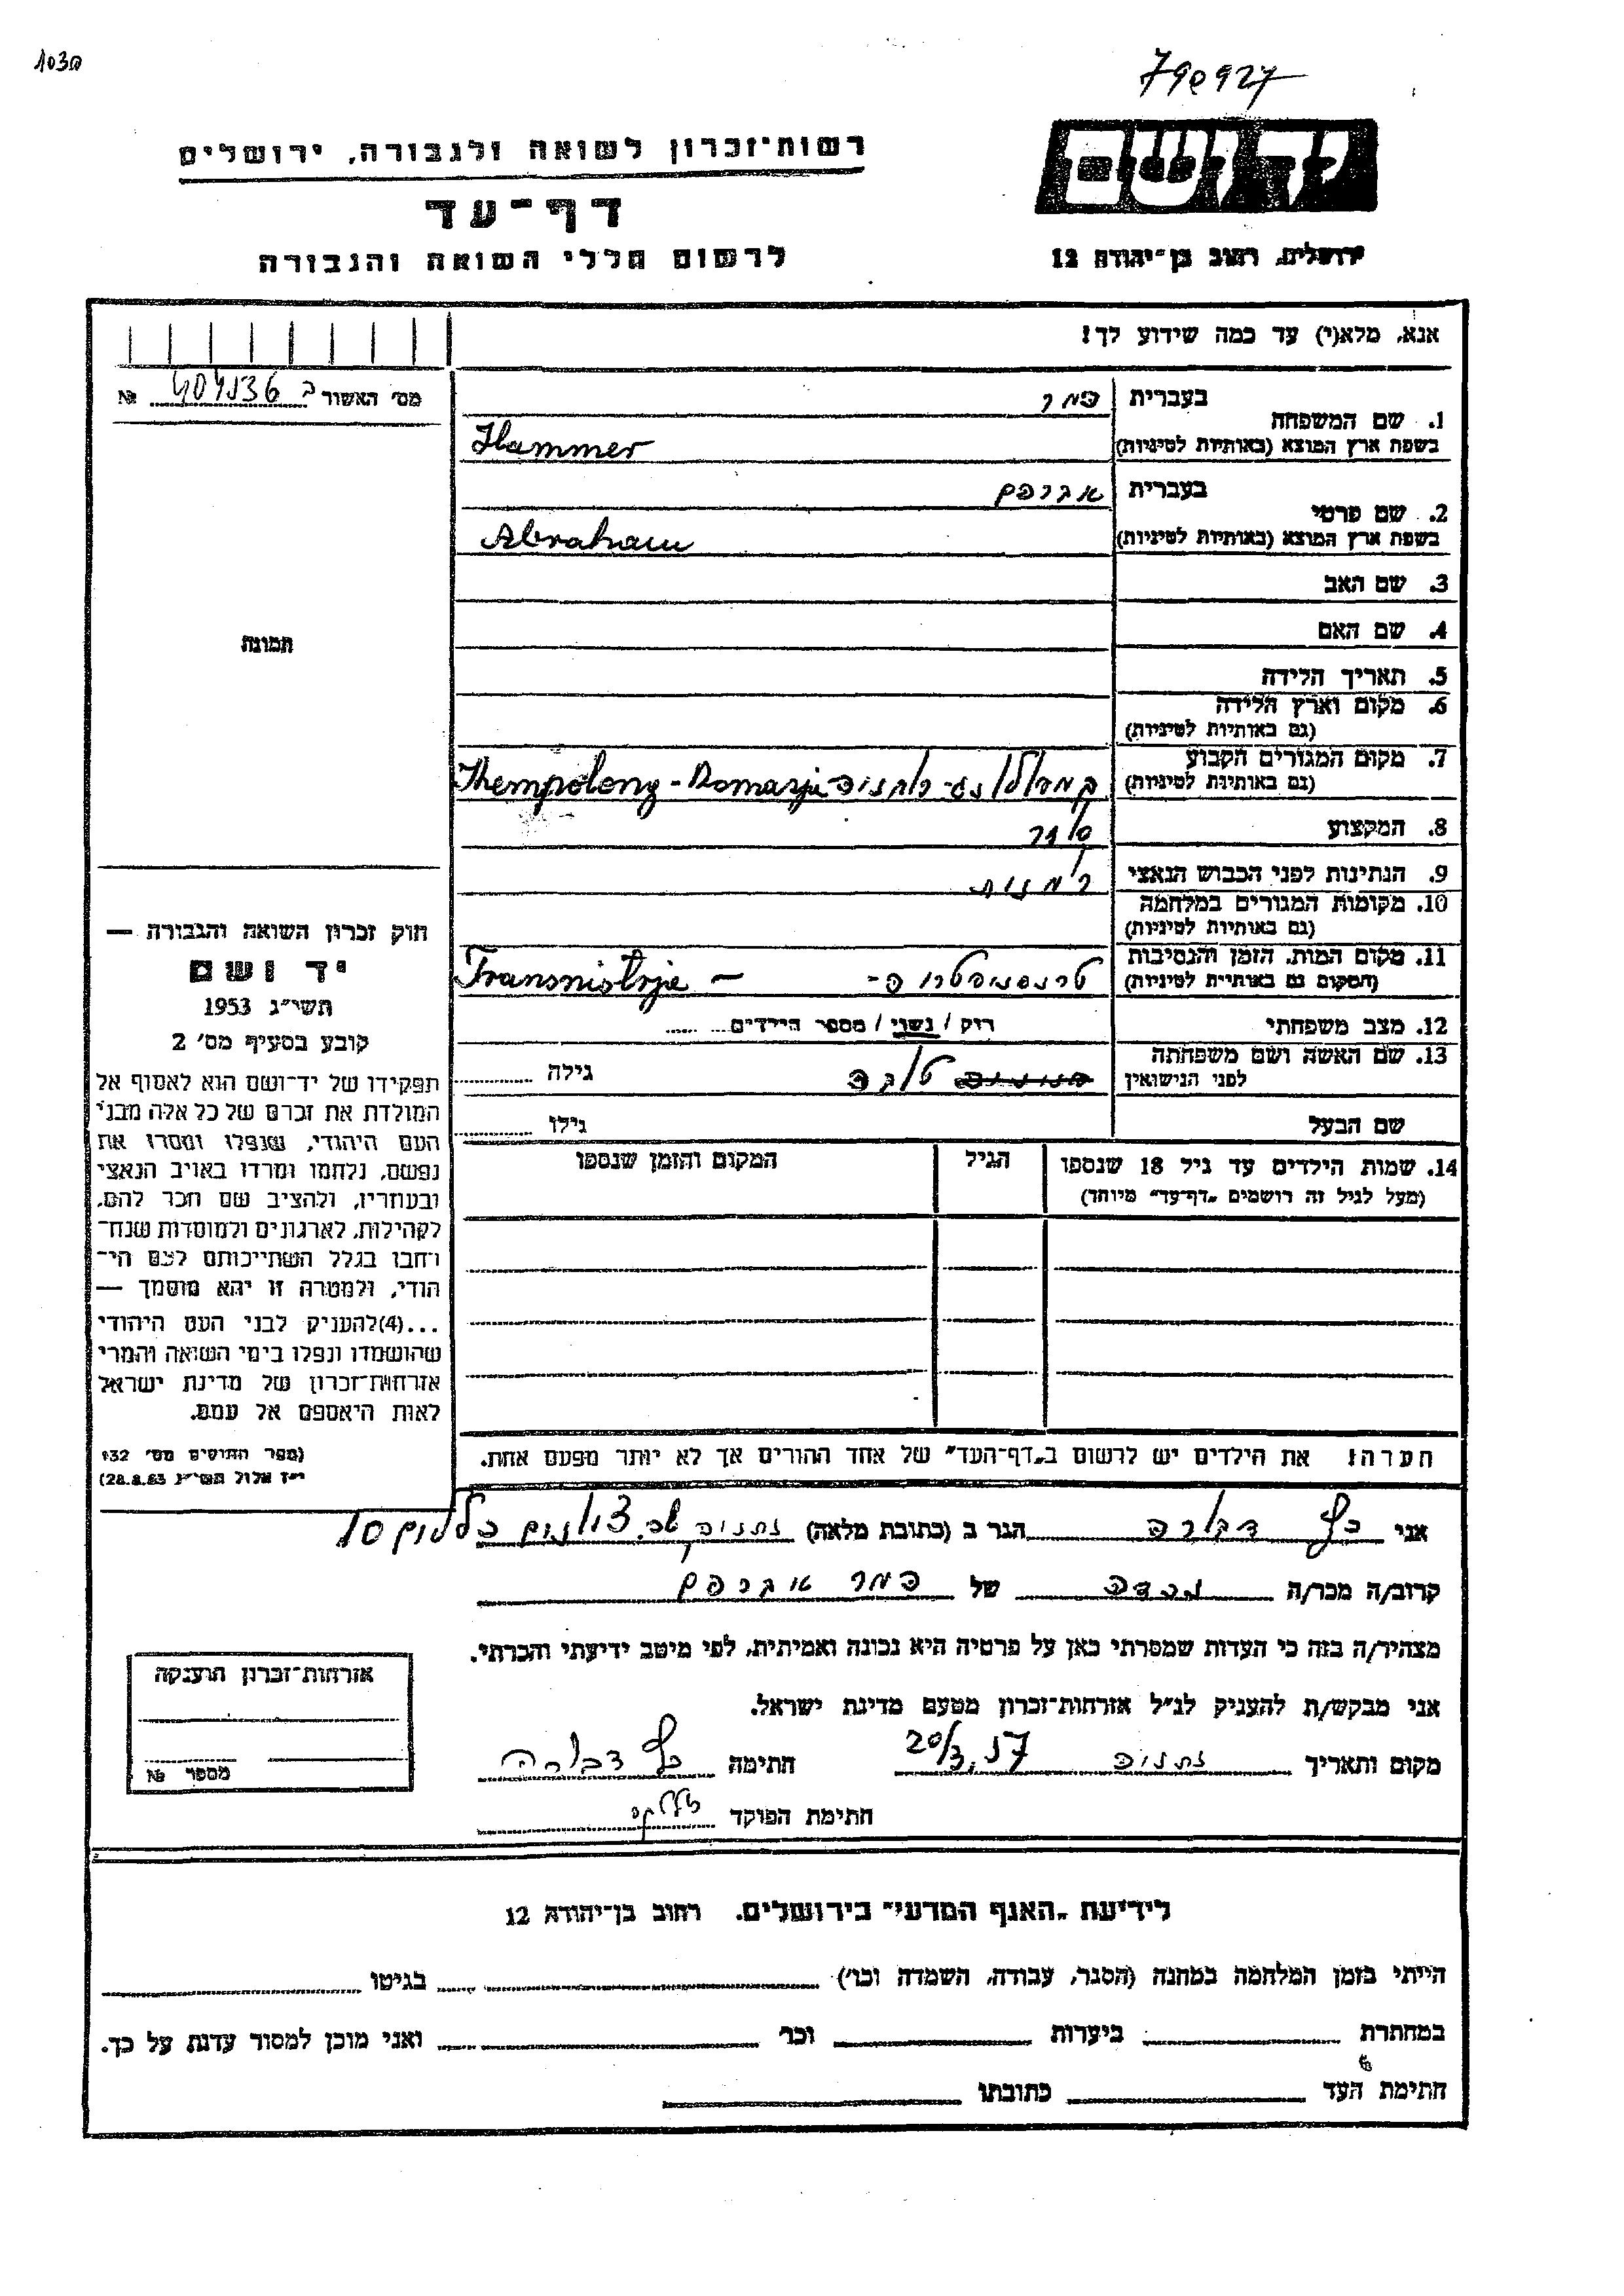 790927
רשות־זכרון לשואה ולגבורה, ירושלים
יד ושם
דף־עד
לרשום חללי השואה והגבורה
ירושלים, רחוב בן־יהודה 12
אנא, מלא(י) עד כמה שידוע לך!
מס׳ האשור № 404136
1. שם המשפחה
בעברית המר
בשפת ארץ המוצא (באותיות לטיניות) Hammer
2. שם פרטי
בעברית אברהם
בשפת ארץ המוצא (באותיות לטיניות) Abraham
3. שם האב
4. שם האם
תמונה
5. תאריך הלידה
6. מקום וארץ הלידה
(גם באותיות לטיניות)
7. מקום המגורים הקבוע
(גם באותיות לטיניות) Khempolong - Romanja
8. המקצוע
9. הנתינות לפני הכבוש הנאצי
10. מקומות המגורים במלחמה
(גם באותיות לטיניות)
11. מקום המות, הזמן והנסיבות
(המקום גם באותיות לטיניות) טרנסניסטריה - Transnistrje -
12. מצב משפחתי רווק / נשוי / מספר הילדים
13. שם האשה ושם משפחתה
לפני הנישואין טובה גילה
שם הבעל גילו
14. שמות הילדים עד גיל 18 שנספו הגיל המקום והזמן שנספו
(מעל לגיל זה רושמים „דף־עד״ מיוחד)
חוק זכרון השואה והגבורה —
יד ושם
תשי״ג 1953
קובע בסעיף מס׳ 2
תפקידו של יד־ושם הוא לאסוף אל
המולדת את זכרם של כל אלה מבני
העם היהודי, שנפלו ומסרו את
נפשם, נלחמו ומרדו באויב הנאצי
ובעוזריו, ולהציב שם וזכר להם,
לקהילות, לארגונים ולמוסדות שנח־
רבו בגלל השתייכותם לעם הי־
הודי, ולמטרה זו יהא מוסמך —
...(4)להעניק לבני העם היהודי
שהושמדו ונפלו בימי השואה והמרי
אזרחות־זכרון של מדינת ישראל
לאות היאספם אל עמם.
(ספר החוקים מס׳ 132
י״ז אלול תשי״ג 28.8.53)
הערה: את הילדים יש לרשום ב„דף־העד״ של אחד ההורים אך לא יותר מפעם אחת.
אני כץ דבורה הגר ב (כתובת מלאה) נתניה
קרוב/ה מכר/ה מכרה של המר אברהם
מצהיר/ה בזה כי העדות שמסרתי כאן על פרטיה היא נכונה ואמיתית, לפי מיטב ידיעתי והכרתי.
אני מבקש/ת להעניק לנ״ל אזרחות־זכרון מטעם מדינת ישראל.
מקום ותאריך נתניה 20/3.57 חתימה כץ דבורה
חתימת הפוקד
אזרחות־זכרון הוענקה
מספר №
לידיעת „האגף המדעי״ בירושלים, רחוב בן־יהודה 12
הייתי בזמן המלחמה במחנה (הסגר, עבודה, השמדה וכו׳) בגיטו
במחתרת ביערות וכו׳ ואני מוכן למסור עדות על כך.
חתימת העד כתובתו